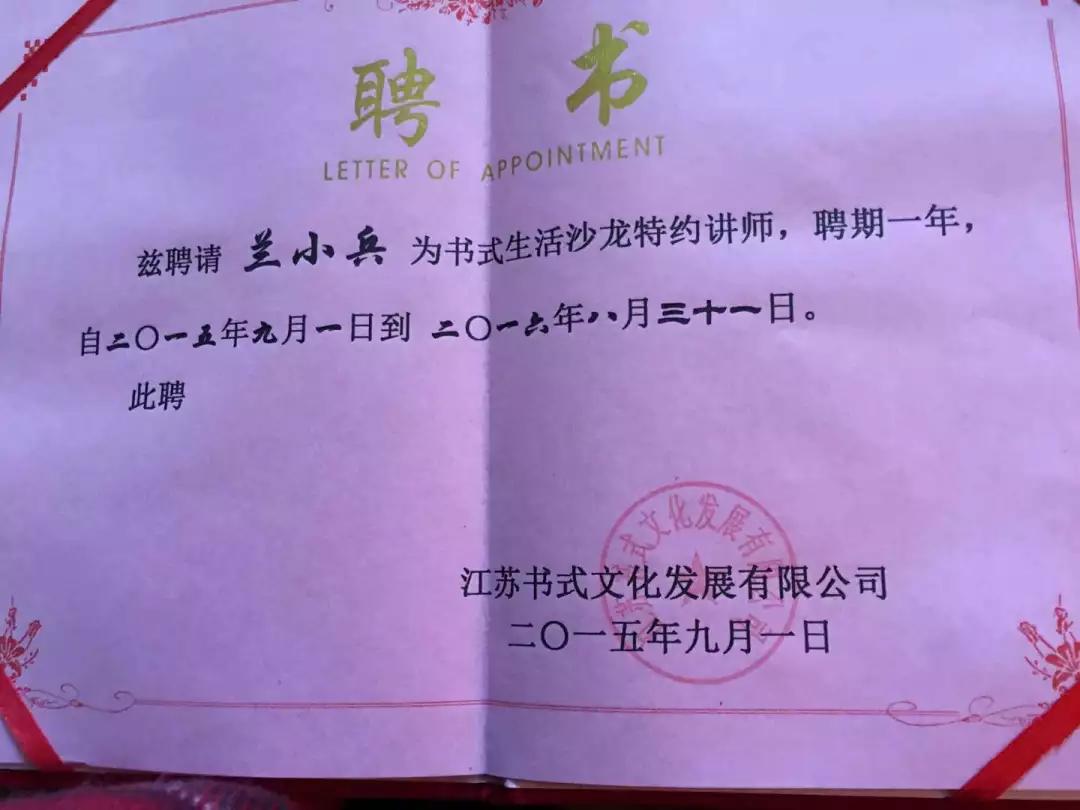 聘书
LETTER OF APPOINTMENT
兹聘请 兰小兵 为书式生活沙龙特约讲师，聘期一年，
自二〇一五年九月一日到 二〇一六年八月三十一日。
此聘
江苏书式文化发展有限公司
二〇一五年九月一日